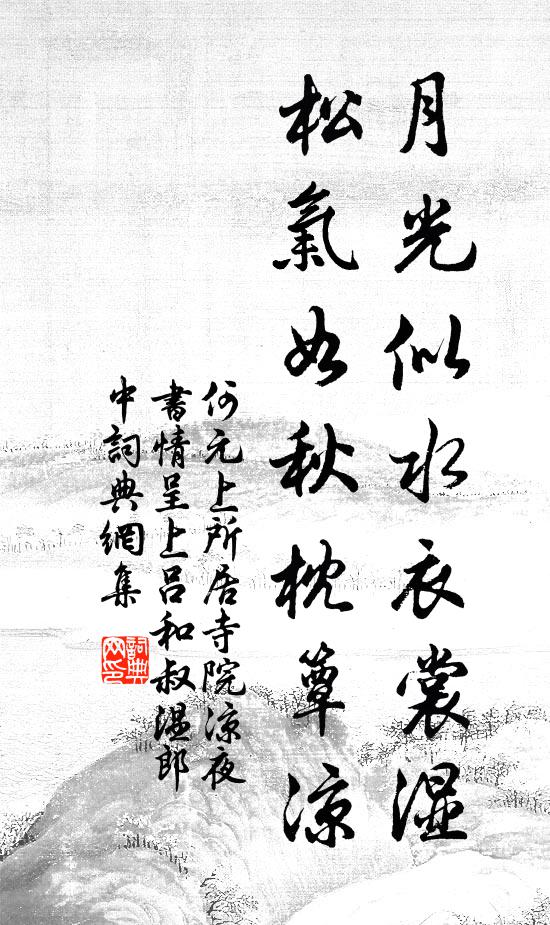 月光似水衣裳湿
松氣如秋枕簟凉
何元上所居寺院凉夜
書情呈上吕和叔温郎
中詞典網集
詞典
网印